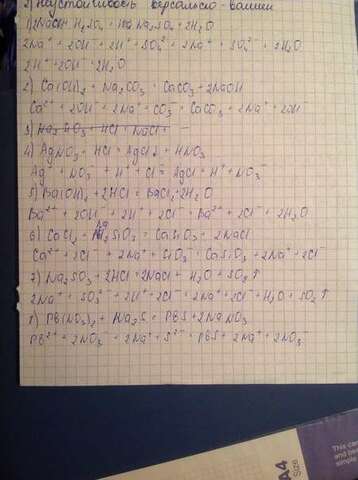 2) Неустойчивость версальско-вашин
1) 2NaOH + H₂SO₄ = Na₂SO₄ + 2H₂O
2Na⁺ + 2OH⁻ + 2H⁺ + SO₄²⁻ = 2Na⁺ + SO₄²⁻ + 2H₂O
2H⁺ + 2OH⁻ = 2H₂O
2) Ca(OH)₂ + Na₂CO₃ = CaCO₃ + 2NaOH
Ca²⁺ + 2OH⁻ + 2Na⁺ + CO₃⁻ = CaCO₃ + 2Na⁺ + 2OH⁻
3) Na₂SiO₃ + HCl = NaCl +
4) AgNO₃ + HCl = AgCl↓ + HNO₃
Ag⁺ + NO₃⁻ + H⁺ + Cl⁻ = AgCl + H⁺ + NO₃⁻
5) Ba(OH)₂ + 2HCl = BaCl₂ + 2H₂O
Ba²⁺ + 2OH⁻ + 2H⁺ + 2Cl⁻ = Ba²⁺ + 2Cl⁻ + 2H₂O
6) CaCl₂ + Na₂SiO₃ = CaSiO₃ + 2NaCl
Ca²⁺ + 2Cl⁻ + 2Na⁺ + SiO₃⁻ = CaSiO₃ + 2Na⁺ + 2Cl⁻
7) Na₂SO₃ + 2HCl = 2NaCl + H₂O + SO₂↑
2Na⁺ + SO₃²⁻ + 2H⁺ + 2Cl⁻ = 2Na⁺ + 2Cl⁻ + H₂O + SO₂↑
8) Pb(NO₃)₂ + Na₂S = PbS + 2NaNO₃
Pb²⁺ + 2NO₃⁻ + 2Na⁺ + S²⁻ = PbS + 2Na⁺ + 2NO₃⁻
A4
Size
This can
and be
simple